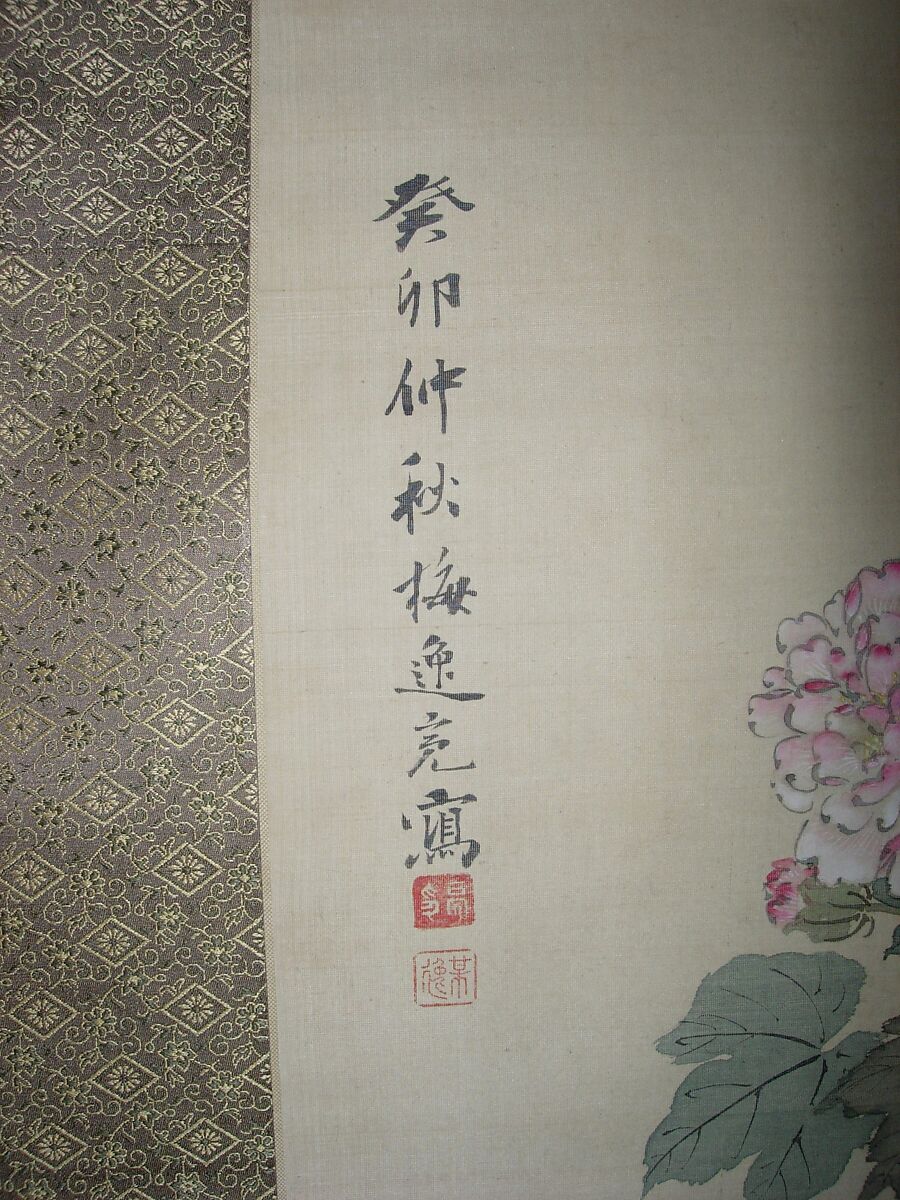 癸卯仲秋梅逸亮寫